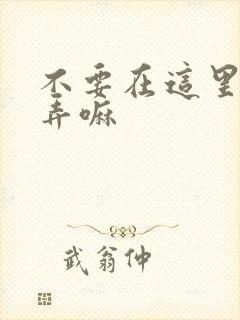 不要在這里
弄嘛
武翁仲